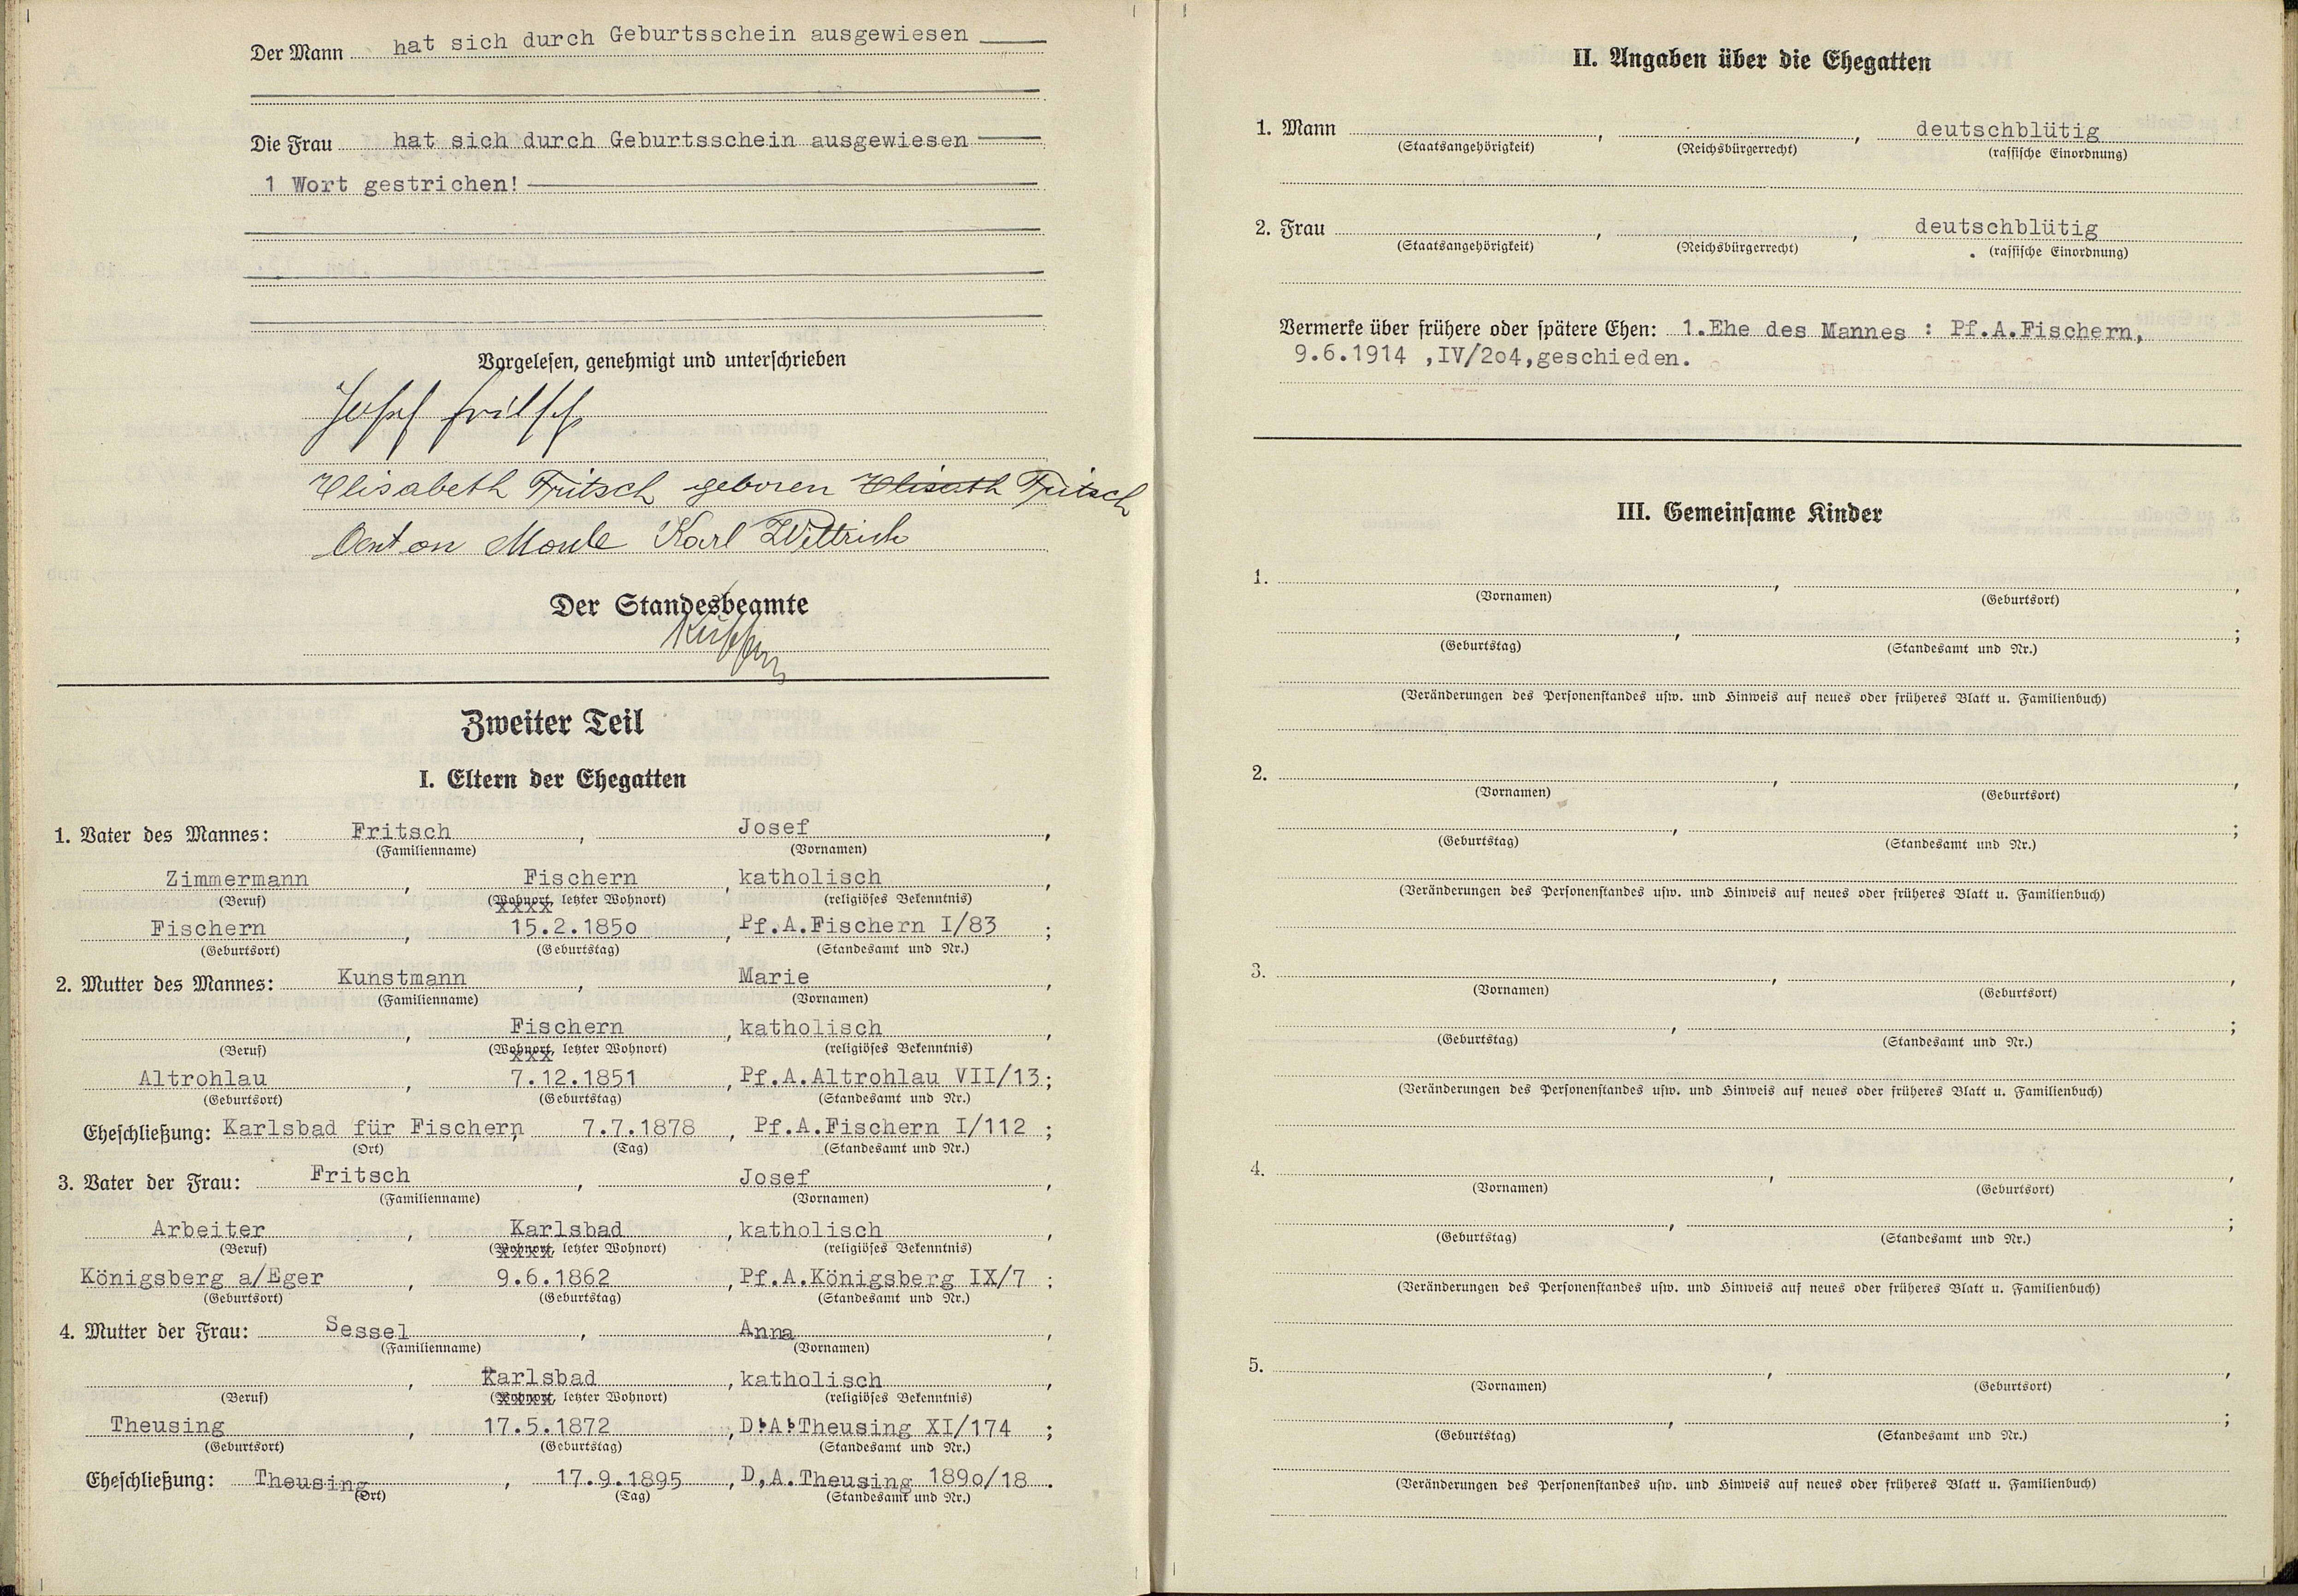 Der Mann hat sich durch Geburtsschein ausgewiesen
Die Frau hat sich durch Geburtsschein ausgewiesen
1 Wort gestrichen!
Vorgelesen, genehmigt und unterschrieben
Josef Fritsch
Elisabeth Fritsch geboren Elisabth Fritsch
Anton Moule Karl Dittrich
Der Standesbeamte
Zweiter Teil
I. Eltern der Ehegatten
1. Vater des Mannes: Fritsch, Josef,
(Familienname) (Vornamen)
Zimmermann, Fischern, katholisch,
(Beruf) (Wohnort, letzter Wohnort) (religiöses Bekenntnis)
Fischern, 15.2.185o, Pf.A.Fischern I/83 ;
(Geburtsort) (Geburtstag) (Standesamt und Nr.)
2. Mutter des Mannes: Kunstmann, Marie,
(Familienname) (Vornamen)
, Fischern, katholisch,
(Beruf) (Wohnort, letzter Wohnort) (religiöses Bekenntnis)
Altrohlau, 7.12.1851, Pf.A.Altrohlau VII/13;
(Geburtsort) (Geburtstag) (Standesamt und Nr.)
Eheschließung: Karlsbad für Fischern, 7.7.1878, Pf.A.Fischern I/112 ;
(Ort) (Tag) (Standesamt und Nr.)
3. Vater der Frau: Fritsch, Josef,
(Familienname) (Vornamen)
Arbeiter, Karlsbad, katholisch,
(Beruf) (Wohnort, letzter Wohnort) (religiöses Bekenntnis)
Königsberg a/Eger, 9.6.1862, Pf.A.Königsberg IX/7 ;
(Geburtsort) (Geburtstag) (Standesamt und Nr.)
4. Mutter der Frau: Sessel, Anna,
(Familienname) (Vornamen)
, Karlsbad, katholisch,
(Beruf) (Wohnort, letzter Wohnort) (religiöses Bekenntnis)
Theusing, 17.5.1872, D.A.Theusing XI/174 ;
(Geburtsort) (Geburtstag) (Standesamt und Nr.)
Eheschließung: Theusing, 17.9.1895, D.A.Theusing 189o/18.
(Ort) (Tag) (Standesamt und Nr.)
II. Angaben über die Ehegatten
1. Mann , , deutschblütig
(Staatsangehörigkeit) (Reichsbürgerrecht) (rassische Einordnung)
2. Frau , , deutschblütig
(Staatsangehörigkeit) (Reichsbürgerrecht) (rassische Einordnung)
Vermerke über frühere oder spätere Ehen: 1.Ehe des Mannes : Pf.A.Fischern,
9.6.1914 ,IV/2o4,geschieden.
III. Gemeinsame Kinder
1. , ,
(Vornamen) (Geburtsort)
, ;
(Geburtstag) (Standesamt und Nr.)
(Veränderungen des Personenstandes usw. und Hinweis auf neues oder früheres Blatt u. Familienbuch)
2. , ,
(Vornamen) (Geburtsort)
, ;
(Geburtstag) (Standesamt und Nr.)
(Veränderungen des Personenstandes usw. und Hinweis auf neues oder früheres Blatt u. Familienbuch)
3. , ,
(Vornamen) (Geburtsort)
, ;
(Geburtstag) (Standesamt und Nr.)
(Veränderungen des Personenstandes usw. und Hinweis auf neues oder früheres Blatt u. Familienbuch)
4. , ,
(Vornamen) (Geburtsort)
, ;
(Geburtstag) (Standesamt und Nr.)
(Veränderungen des Personenstandes usw. und Hinweis auf neues oder früheres Blatt u. Familienbuch)
5. , ,
(Vornamen) (Geburtsort)
, ;
(Geburtstag) (Standesamt und Nr.)
(Veränderungen des Personenstandes usw. und Hinweis auf neues oder früheres Blatt u. Familienbuch)